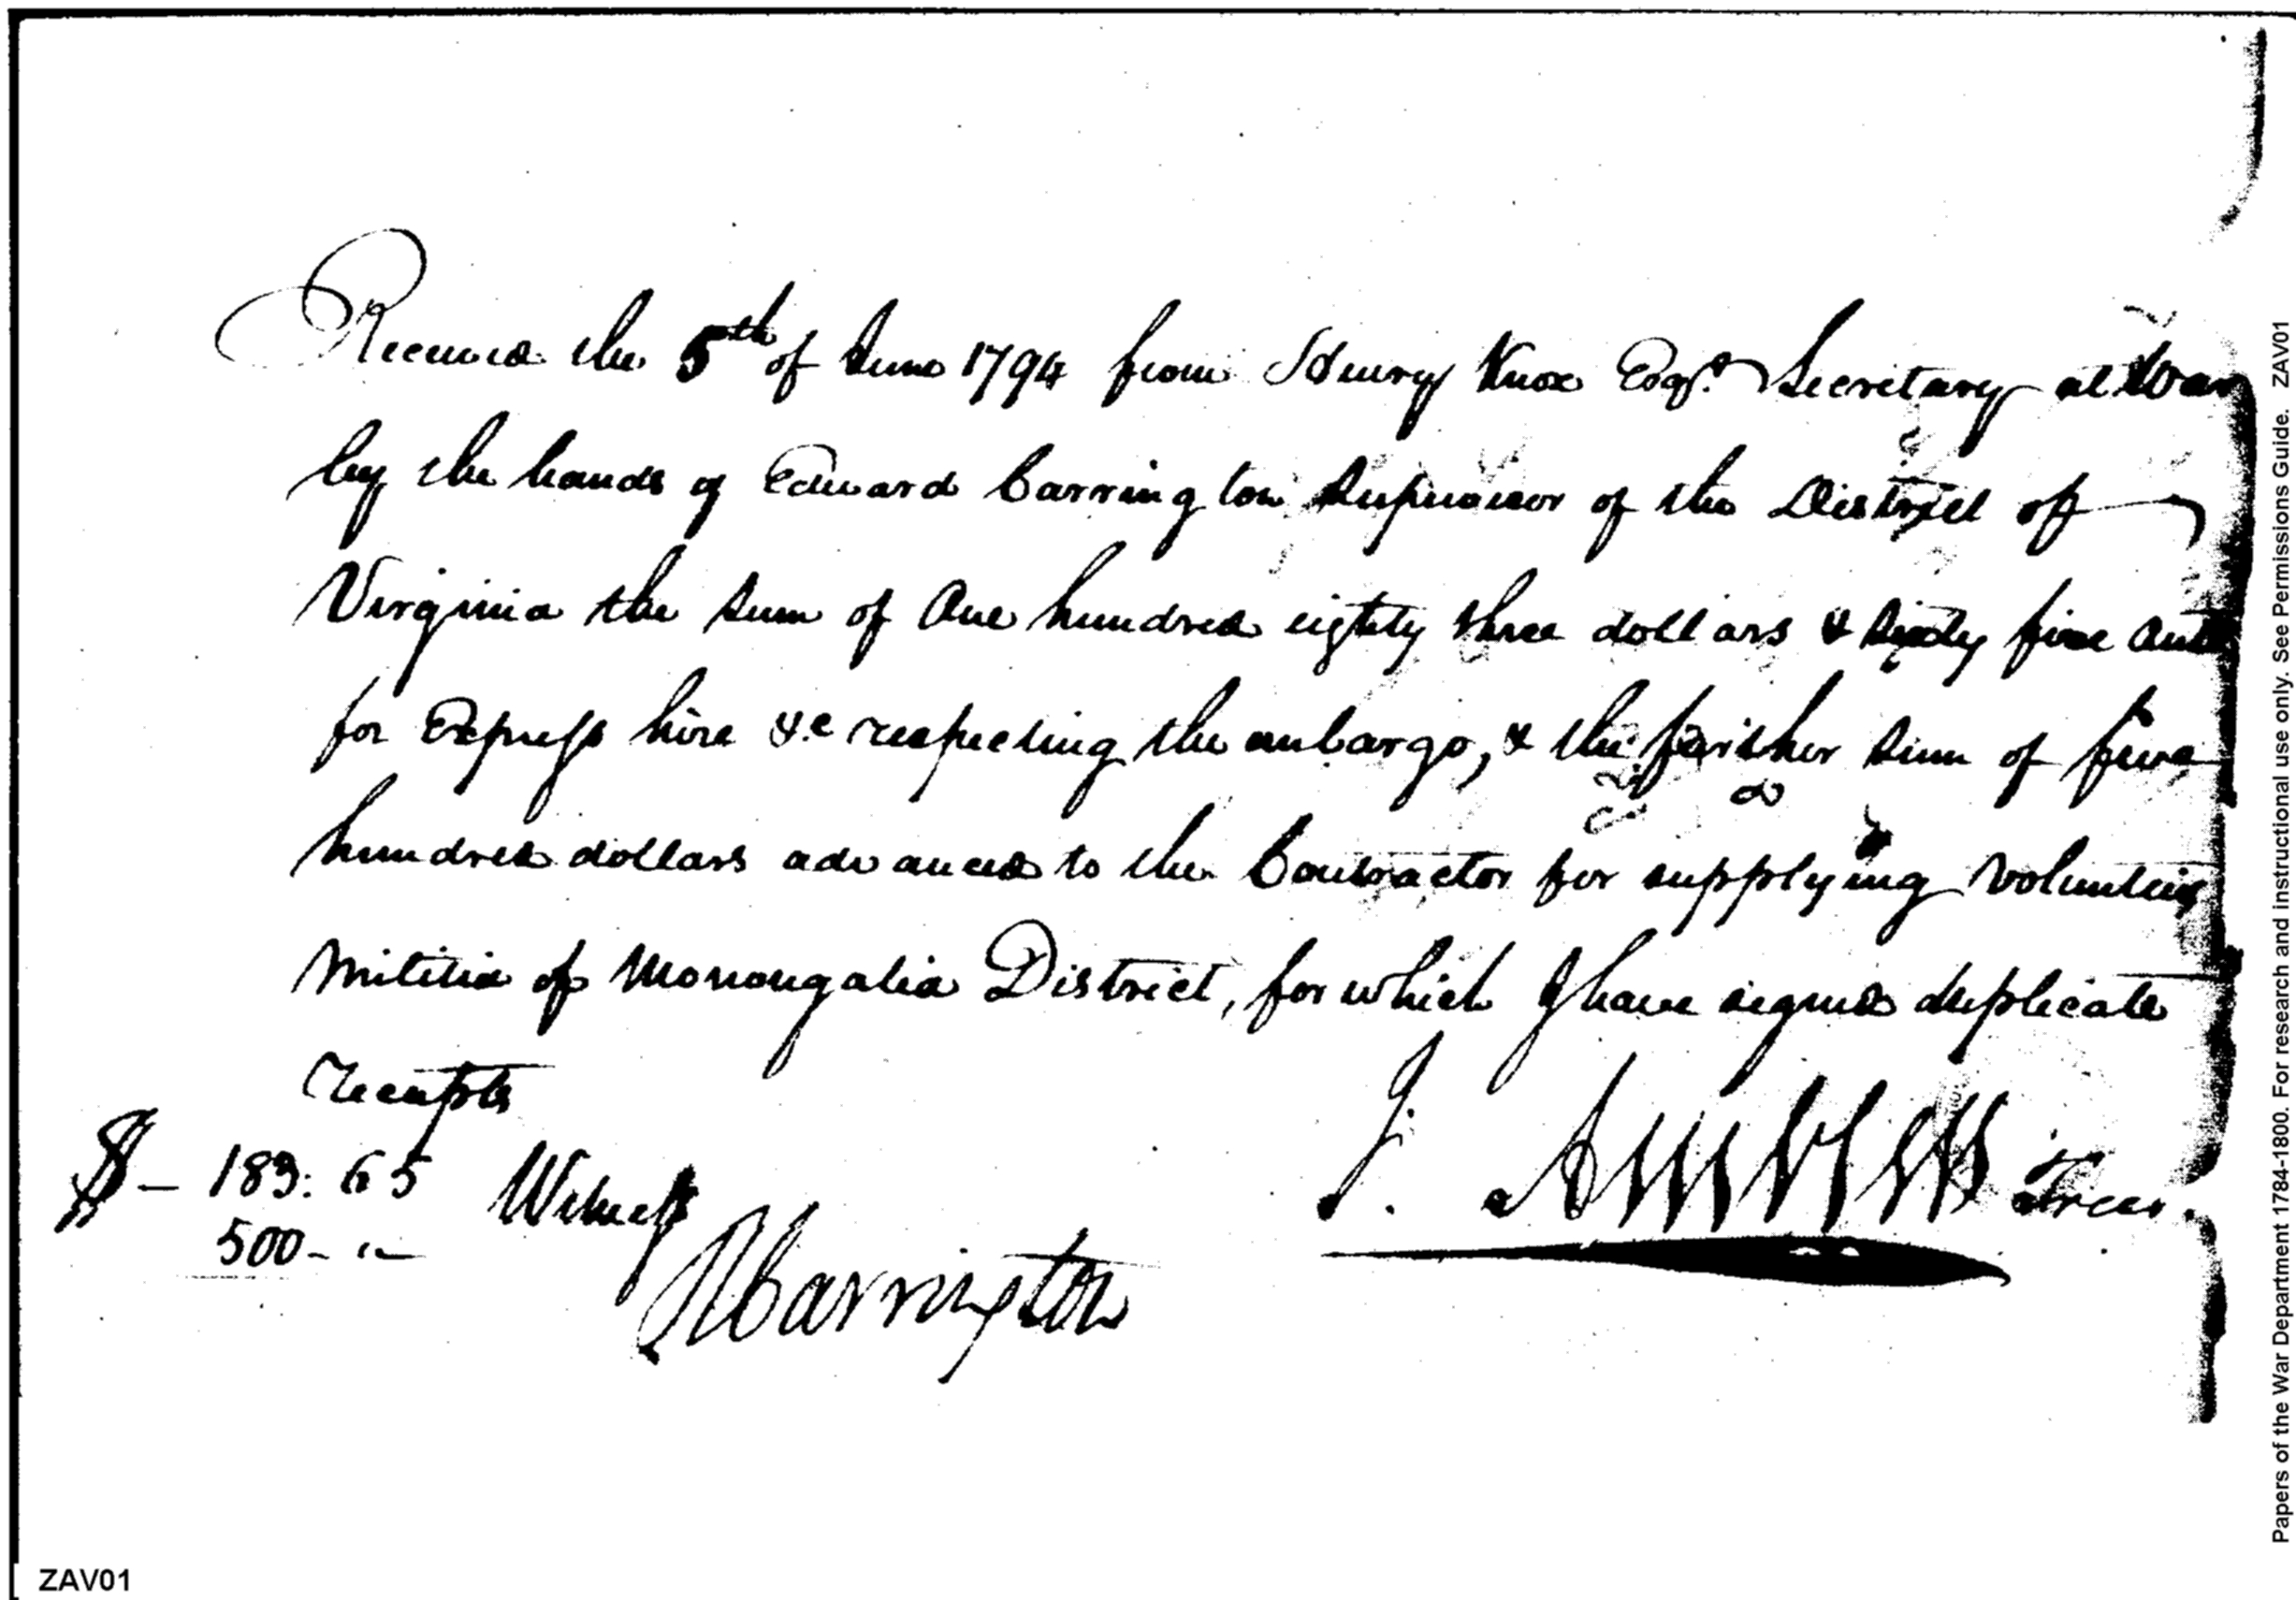 Received the 5th of June 1794 from Henry Knox Esqr. Secretary at War
by the hands of Edward Carrington Supervisor of the District of
Virginia the sum of One hundred eighty three dollars & sixty five Cents
for Express hire &c respecting the embargo, & the further sum of five
hundred dollars advanced to the Contractor for supplying volunteer
Militia of Monongalia District, for which I have signed duplicate
receipts
$ - 183: 65 Witness
J. Ambler Treas.
500 - "-
Carrington
ZAV01
Papers of the War Department 1784-1800. For research and instructional use only. See Permissions Guide. ZAV01